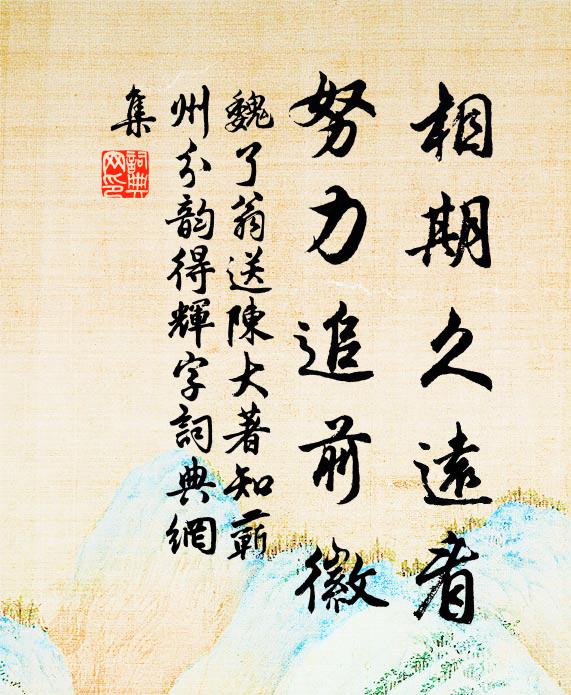 相期久遠者
努力追前徽
魏了翁送陳大著知蘄
州分韵得輝字詞典網
集
詞典網印